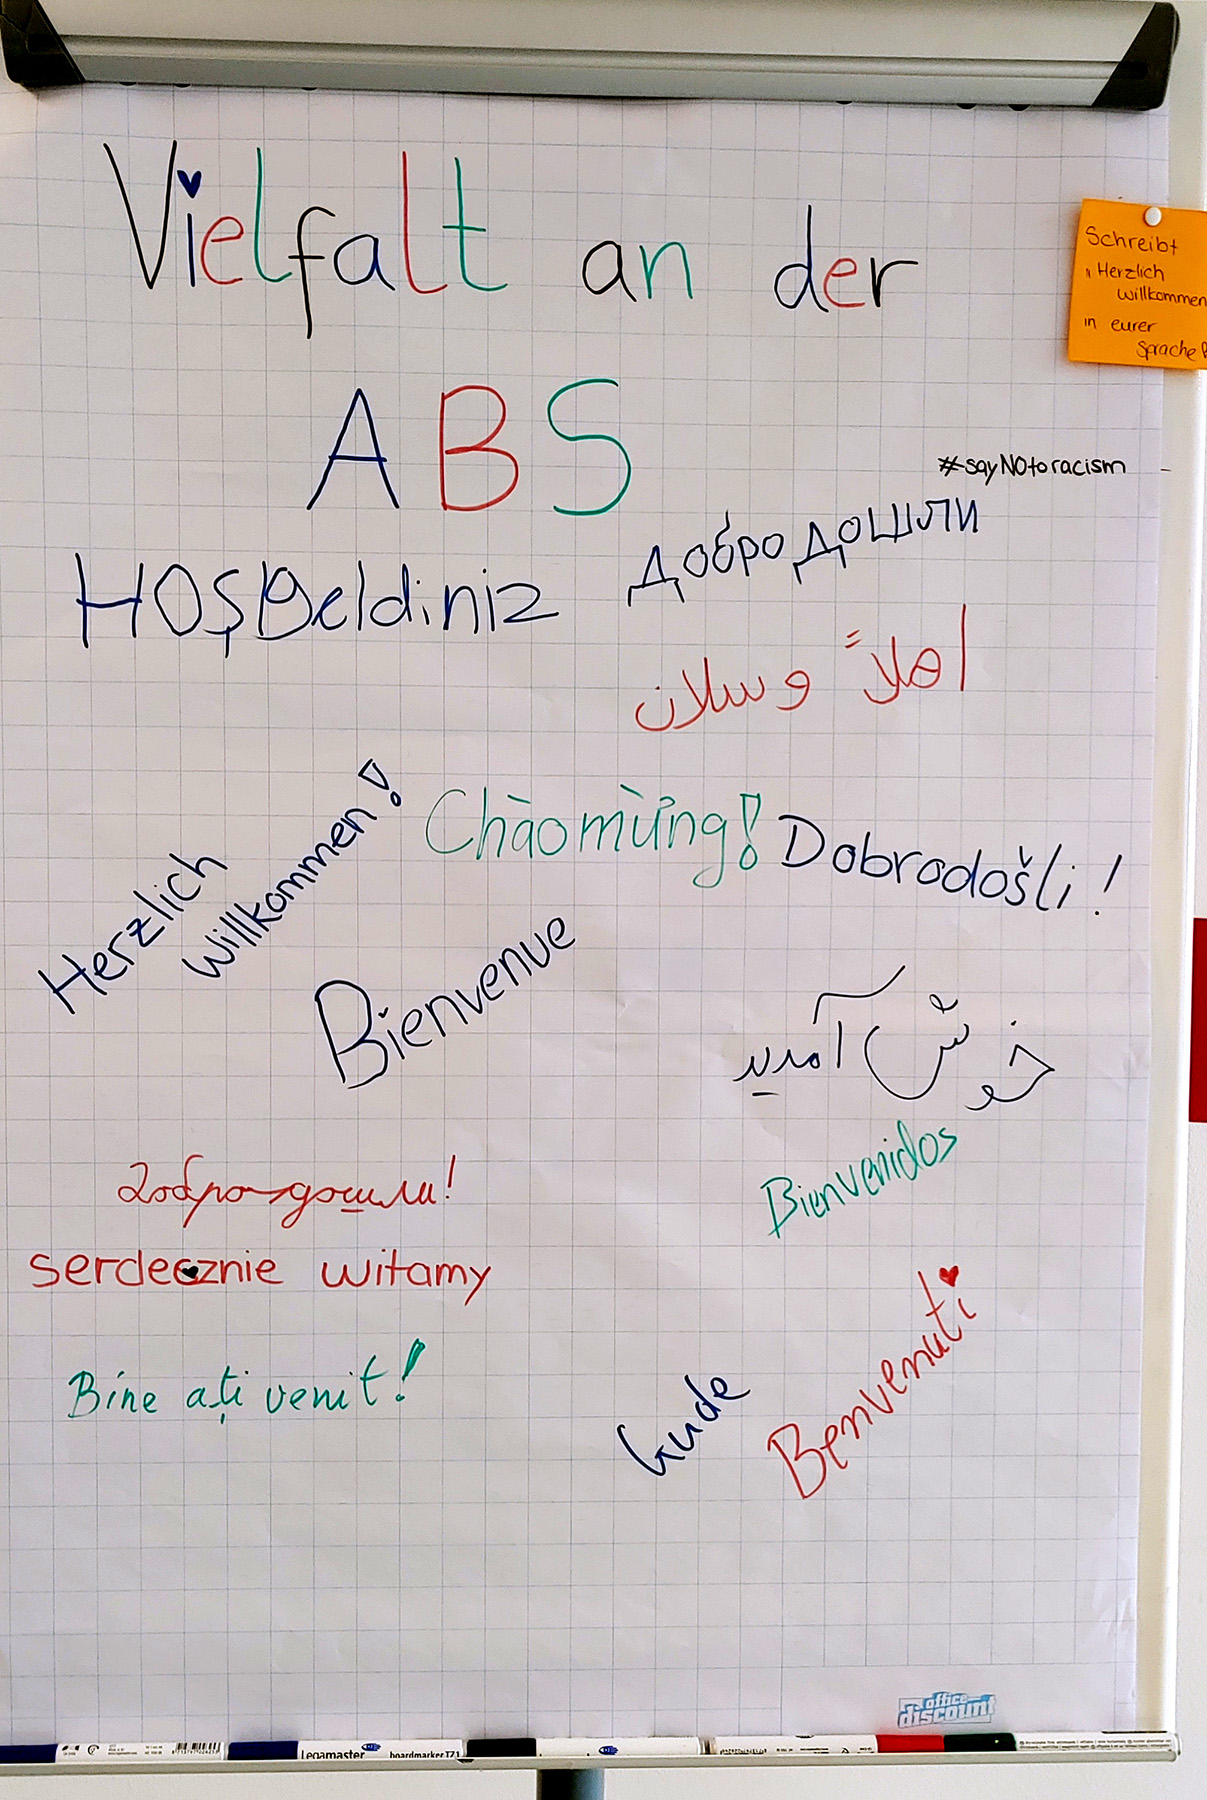 Vielfalt an der
ABS
Schreibt
"Herzlich
willkommen
in eurer
Sprache
#sayNOtoracism
HOŞGeldiniz
Добро дошли
اهلاً وسلان
Herzlich
willkommen!
Chào mừng!
Dobrodošli!
Bienvenue
خوش آمدید
Bienvenidos
Добро дошли!
serdecznie witamy
Bine ați venit!
Gude
Benvenuti
office
discount
Legamaster
boardmarker TZ1